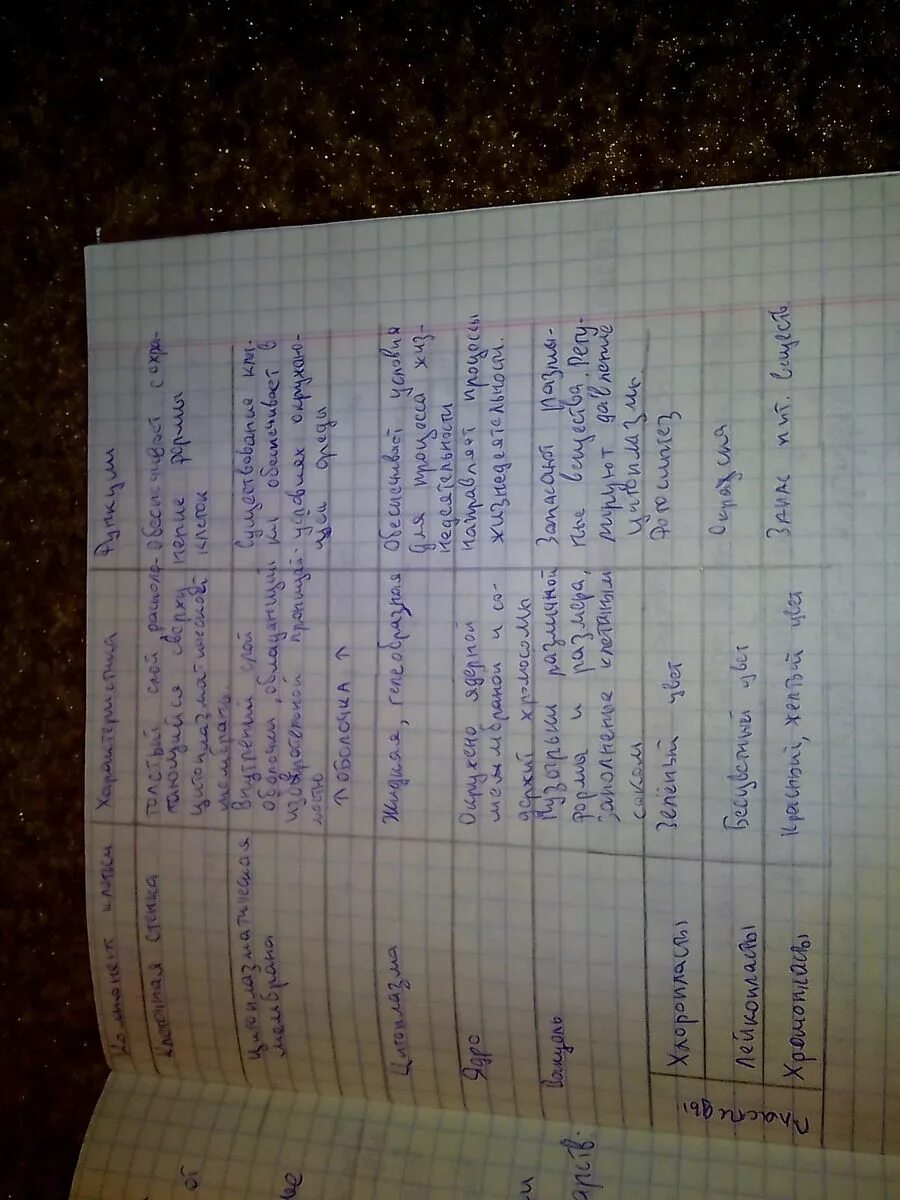 Компонент клетки Характеристика Функции
Клеточная стенка
толстый слой располо-
гающийся сверху
цитоплазматической
мембраны
Обеспечивает сохра-
нение формы
клеток
Цитоплазматическая
мембрана
Внутрений слой
оболочки, обладающий
избирательной проницай-
мостью
Существование клет-
ки обеспечивает в
условиях окружаю-
щей среды
↑ ОБОЛОЧКА ↑
Цитоплазма
Жидкая, гелеобразная
Обеспечивает условия
для процесса жиз-
недеятельности
Ядро
Окружено ядерной
мембраной и со-
держит хромосомы
направляет процессы
жизнедеятельности.
Вакуоль
Пузырьки различной
форма и размера,
заполнение клетачным
соком
Запасают различ-
ные вещества. Регу-
лируют давление
цитоплазмы.
Пласти
ды
Хлоропласты
Зелёный цвет
Фотосинтез
Лейкопласты
Бесцветный цвет
Хромопласты
Красный, желтый цвет
ЗАПАС пит. веществ
от
арств.